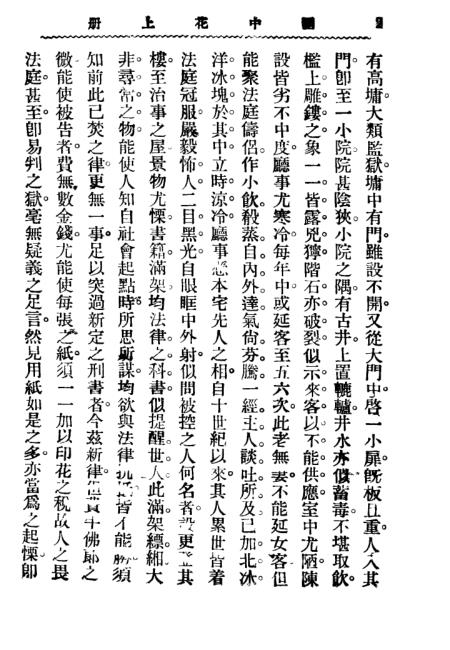 冊上花中圍
有高墉。大類監獄。墉中有門。雖設不開。又從大門中。啓一小扉。既板且重。人入其
門。卽至一小院。院甚陰狹。小院之隅。有古井。上置轆轤。井水亦似畜毒。不堪取飲。
檻上雕鏤之象。一一皆露兇獰。階石亦破裂。似示來客以不能供應。室中尤陋。陳
設皆劣不中度。聽事尤寒冷。每年中或延客至五六次。此老無妻。不能延女客。但
能聚法庭儔侶。作小飲。殽蒸自內外達。氣尙芬騰。一經主人談吐所及。已加北冰
洋冰塊於其中。立時涼冷。聽事 本宅先人之相。自十世紀以來。其人累世皆着
法庭冠服。嚴毅怖人。二目黑光。自眼眶中外射。似問被控之人何名者。設更 其
樓。至治事之屋。景物尤慄。書籍滿架。均法律之科書。似提醒世人。此滿架縹緗。大
非尋常之物。能使人知自社會起點時。所思所謀。均欲與法律 皆不能 須
知前此已焚之律。更無一事。足以突過新定之刑書者。今茲新律。 牛佛郎之
微。能使被告者。費無數金錢。尤能使每張之紙。須一一加以印花之稅。故人之畏
法庭甚至。卽易判之獄。毫無疑義之足言。然見用紙如是之多。亦當爲之起慄。卽